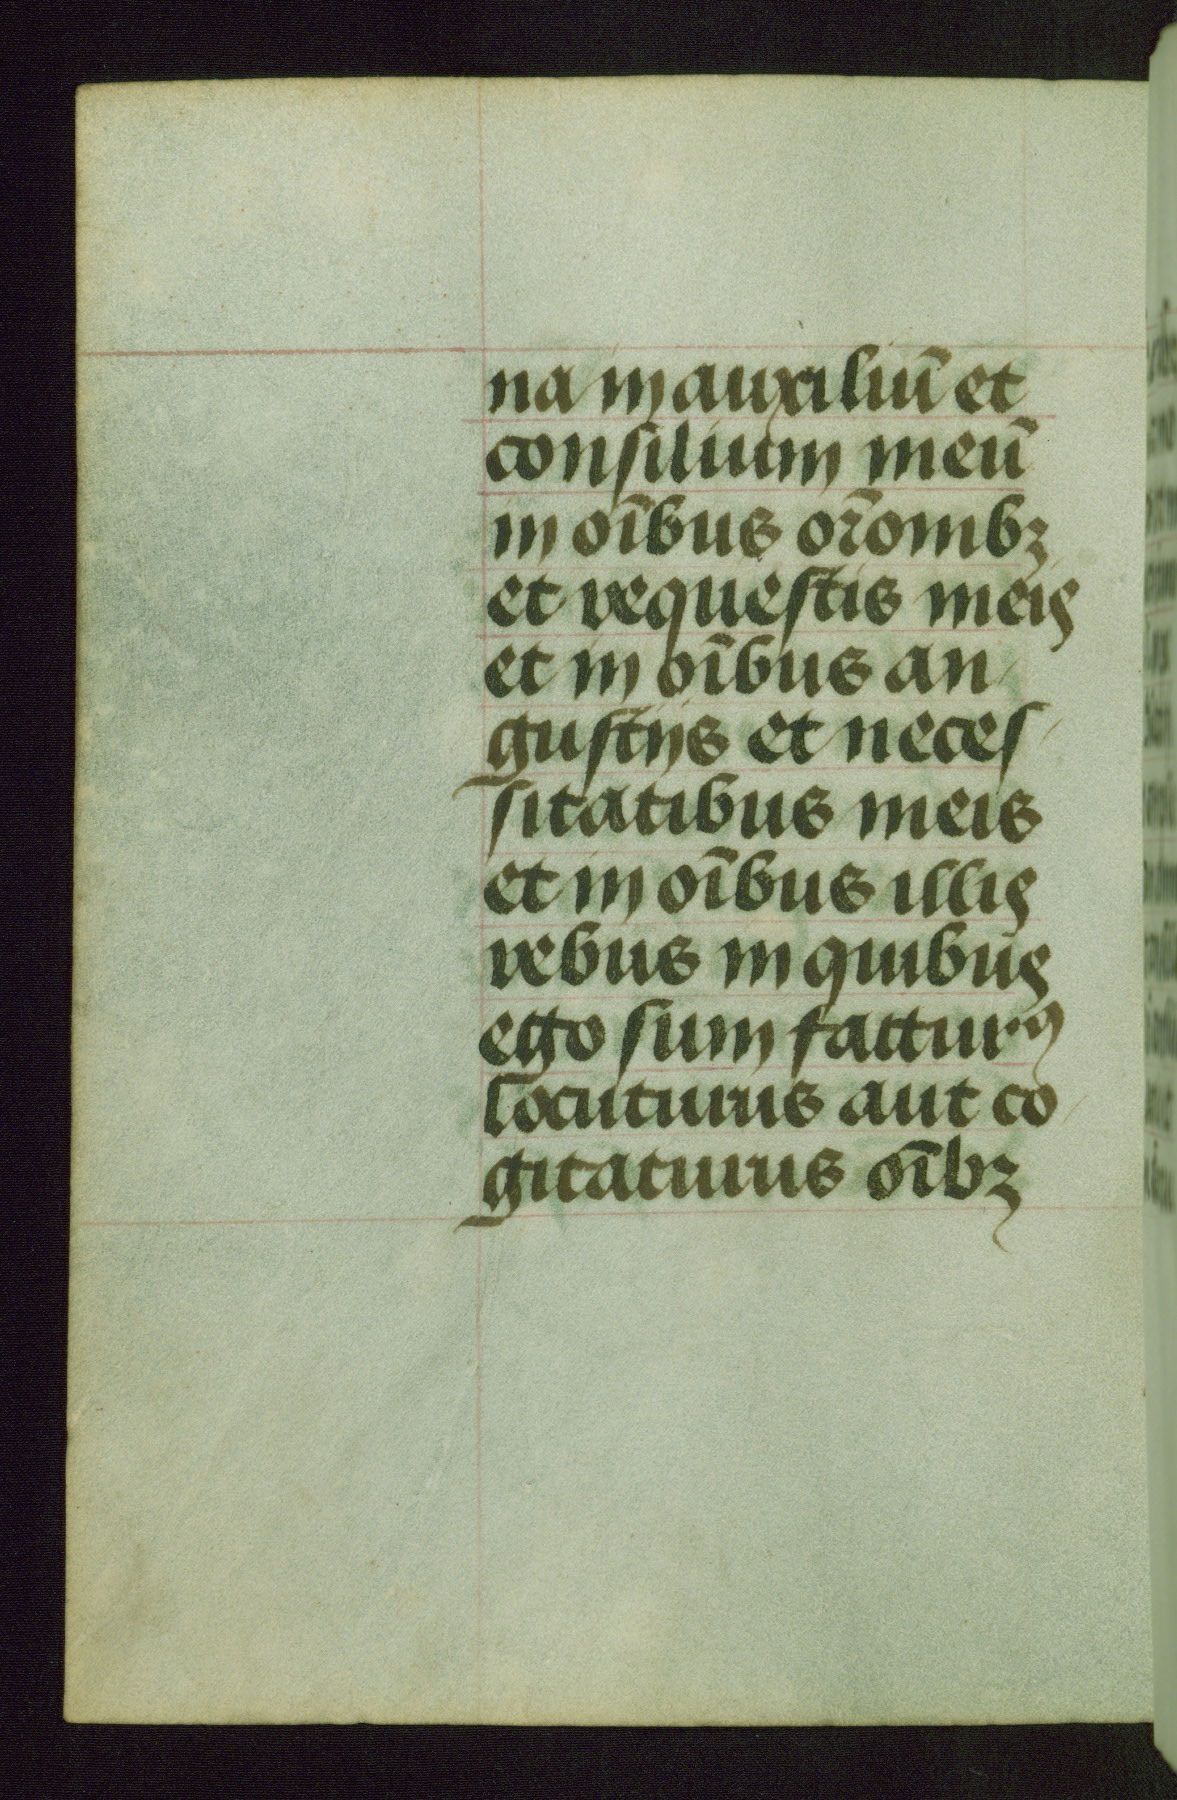 na in auxiliū et
consilium meū
in oībus or̄onibꝫ
et requestis meis
et in oībus an
gustijs et neces
sitatibus meis
et in oībus illis
rebus in quibus
ego sum facturꝰ
locuturus aut co
gitaturus oībꝫ